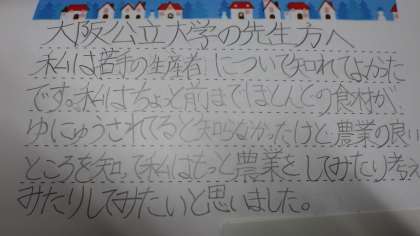 大阪公立大学の先生方へ
私は若手の生産者について知れてよかった
です。私はちょっと前までほとんどの食材が
ゆにゅうされてると知らなかったけど農業の良い
ところを知って私はもっと農業をしてみたり考え
みたりしてみたいと思いました。